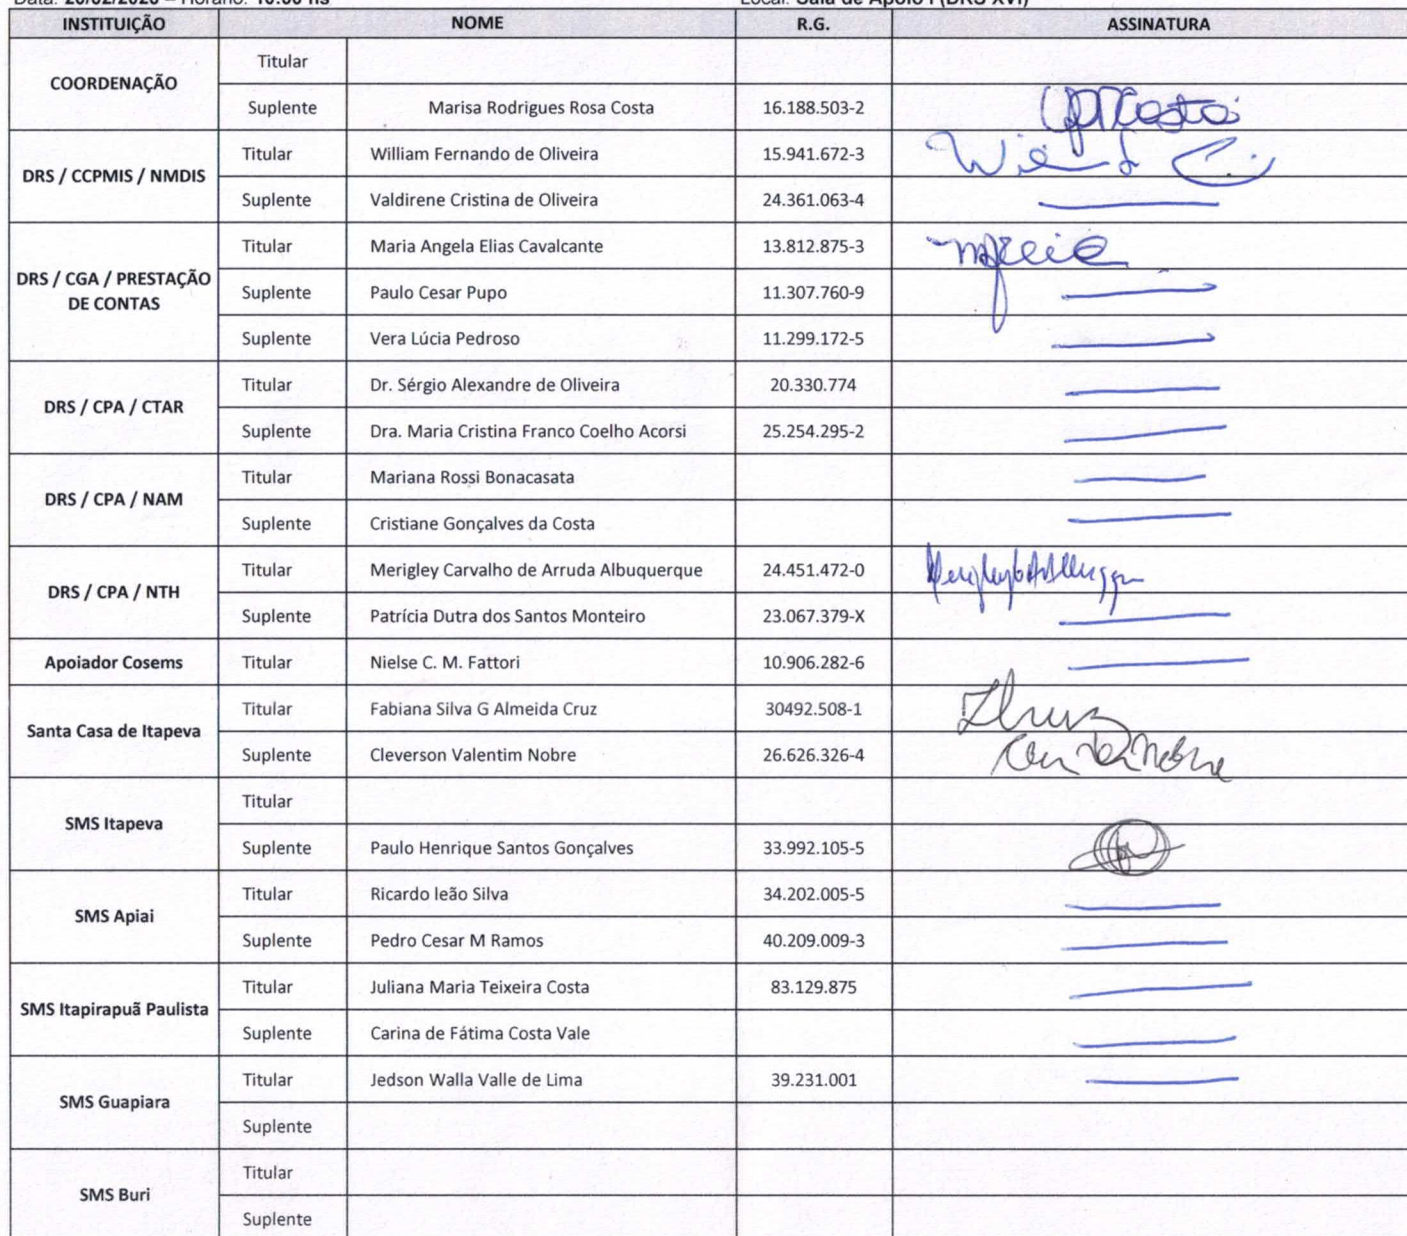 Data: 20/02/2020 – Horário: 10:00 hs Local: Sala de Apoio I (DRS XVI)
INSTITUIÇÃO NOME R.G. ASSINATURA
COORDENAÇÃO
Titular
Suplente Marisa Rodrigues Rosa Costa 16.188.503-2
DRS / CCPMIS / NMDIS
Titular William Fernando de Oliveira 15.941.672-3
Suplente Valdirene Cristina de Oliveira 24.361.063-4
DRS / CGA / PRESTAÇÃO
DE CONTAS
Titular Maria Angela Elias Cavalcante 13.812.875-3
Suplente Paulo Cesar Pupo 11.307.760-9
Suplente Vera Lúcia Pedroso 11.299.172-5
DRS / CPA / CTAR
Titular Dr. Sérgio Alexandre de Oliveira 20.330.774
Suplente Dra. Maria Cristina Franco Coelho Acorsi 25.254.295-2
DRS / CPA / NAM
Titular Mariana Rossi Bonacasata
Suplente Cristiane Gonçalves da Costa
DRS / CPA / NTH
Titular Merigley Carvalho de Arruda Albuquerque 24.451.472-0
Suplente Patrícia Dutra dos Santos Monteiro 23.067.379-X
Apoiador Cosems Titular Nielse C. M. Fattori 10.906.282-6
Santa Casa de Itapeva
Titular Fabiana Silva G Almeida Cruz 30492.508-1
Suplente Cleverson Valentim Nobre 26.626.326-4
SMS Itapeva
Titular
Suplente Paulo Henrique Santos Gonçalves 33.992.105-5
SMS Apiai
Titular Ricardo leão Silva 34.202.005-5
Suplente Pedro Cesar M Ramos 40.209.009-3
SMS Itapirapuã Paulista
Titular Juliana Maria Teixeira Costa 83.129.875
Suplente Carina de Fátima Costa Vale
SMS Guapiara
Titular Jedson Walla Valle de Lima 39.231.001
Suplente
SMS Buri
Titular
Suplente